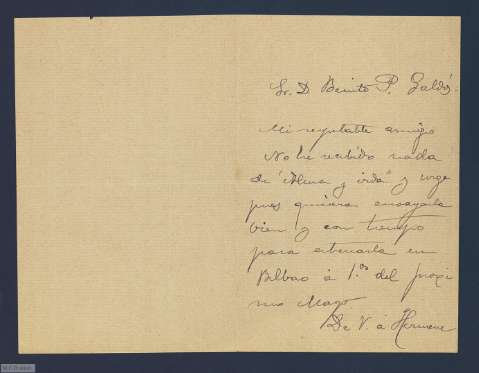 Sr. D. Benito P. Galdós.
Mi respetable amigo
No he recibido nada
de "Alma y vida" y urge
pues quisiera ensayarla
bien y con tiempo
para estrenarla en
Bilbao á 1.os del próxi
mo Mayo.
De V. á